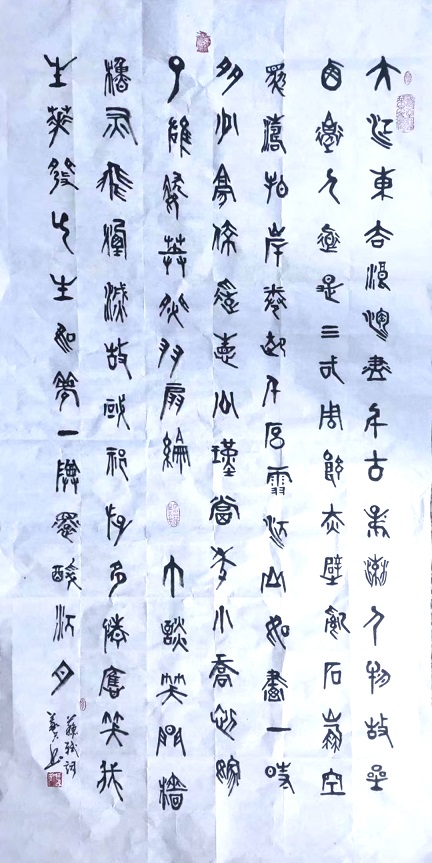 大江東去浪淘盡千古風流人物故壘
西邊人道是三國周郎赤壁亂石崩空
驚濤拍岸卷起千堆雪江山如畫一時
多少豪傑遙想公瑾當年小喬初嫁
了雄姿英發羽扇綸巾談笑間檣
櫓灰飛煙滅故國神遊多情應笑我
生華發人生如夢一樽還酹江月
蘇軾詞